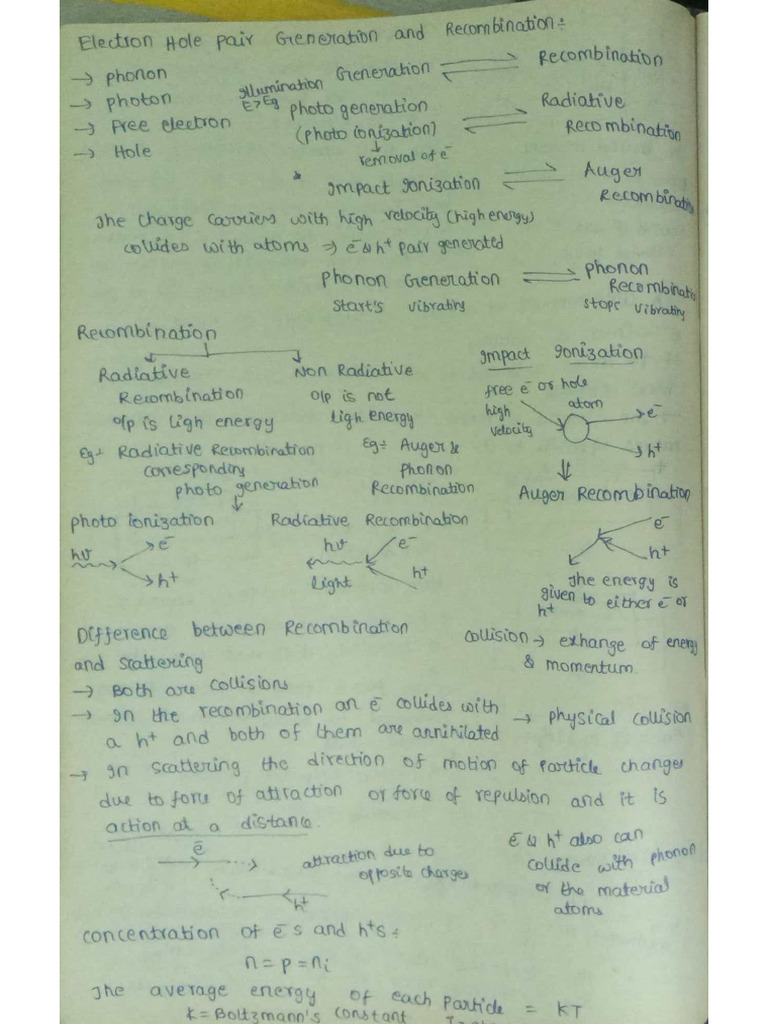 Electron Hole pair Generation and Recombination:-
→ phonon
→ photon
→ Free electron
→ Hole
Generation ⇌ Recombination
Illumination
E>Eg
photo generation ⇌ Radiative
(photo ionization) Recombination
↓
removal of e⁻
Impact Ionization ⇌ Auger
Recombination
The charge carriers with high velocity (high energy)
collides with atoms ⇒ e⁻ & h⁺ pair generated
Phonon Generation ⇌ phonon
Recombination
Start's vibrating stops vibrating
Recombination
Radiative
Recombination
o/p is ligh energy
Eg:- Radiative Recombination
corresponding
photo generation
Non Radiative
o/p is not
ligh energy
Eg:- Auger &
phonon
Recombination
Impact Ionization
free e⁻ or hole
high
velocity
atom
e⁻
h⁺
⇓
Auger Recombination
e⁻
h⁺
The energy is
given to either e⁻ or
h⁺
photo ionization
hν
e⁻
h⁺
Radiative Recombination
hν
light
e⁻
h⁺
Difference between Recombination
and scattering
collision → exhange of energy
& momentum
→ Both are collisions
→ In the recombination an e⁻ collides with → physical collision
a h⁺ and both of them are annihilated
→ In scattering the direction of motion of particle changes
due to force of attraction or force of repulsion and it is
action at a distance.
e⁻
h⁺
attraction due to
opposite charges
e⁻ & h⁺ also can
collide with phonon
or the material
atoms
concentration of e⁻s and h⁺s:-
n = p = ni
The average energy of each particle = KT
K = Boltzmann's constant